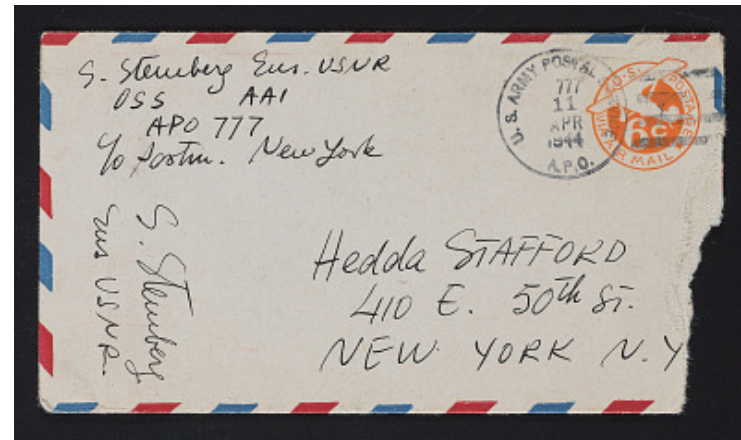 S. Steinberg Ens. USNR
OSS AAI
APO 777
c/o Postm. New York
U. S. ARMY POSTAL
777
11
APR
1944
A.P.O.
U.S. POSTAGE
6c
VIA AIR MAIL
S. Steinberg
Ens USNR.
Hedda STAFFORD
410 E. 50th ST.
NEW YORK N.Y